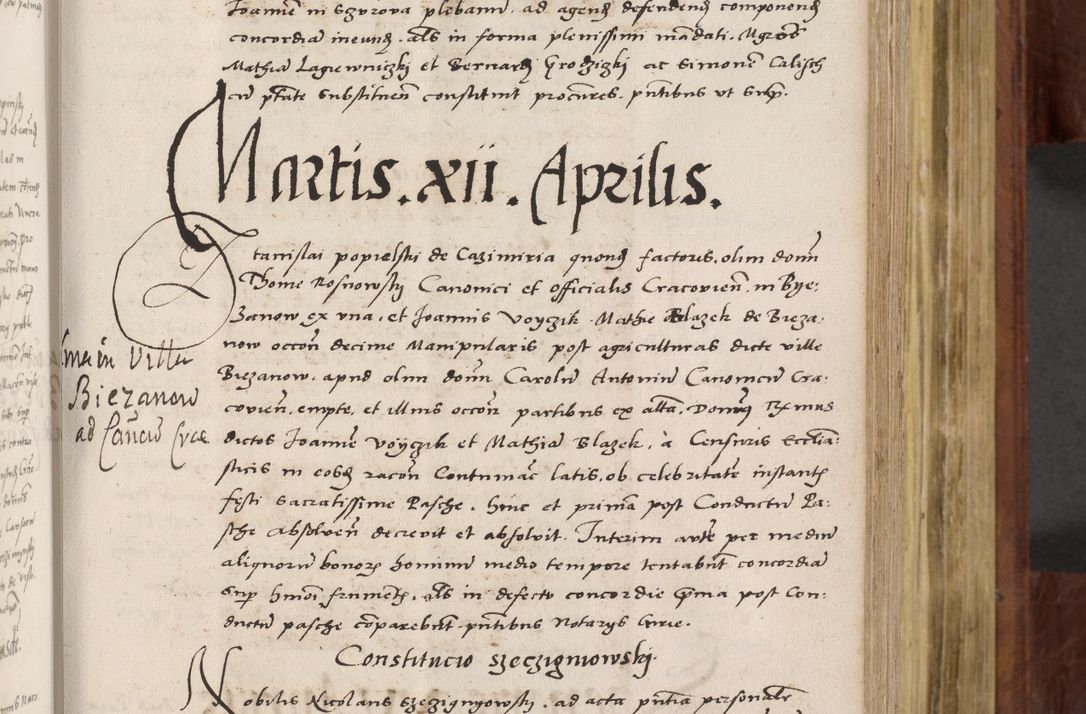 Joannē in Szurova plebanū, ad agenđ defendenđ componenđ
concordiā ineunđ. als in forma plenissimi mādati. Mgrōs
Mathiā Lagiewniczki et Bernardū Grodzizki ac Simonē Calisch
cū ptāte substituēn constituit procūres. pntibus ut supr.
Martis . xii . Aprilis .
Stanislai popielski de Cazimiria quonđ factoris, olim domī
Thome Rosnowskj Canonici et Officialis Cracovieñ. in Bye:
zanow ex una, et Joannis Voyczik. Mathie Blazek de Bieza
now occōn decime Manipularis post agriculturas dicte ville
Biezanow, apud olim domī Carolū Antoniū Canonicū Cra:
covieñ, empte, et illius occōn partibus ex altā. Domnus Rxmus
dictos Joannē Voyczik et Mathiā Blazek, à Censuris Ecclia:
sticis in eosđ racōn Contumac̄ latis, ob celebritatē instantis
festi sacratissime Pasche, hinc et primā post Conductū Pa:
sche absolveñ decrevit et absolvit. Interim autē per mediū
aliquorū bonorꝝ hominū medio tempore tentabūt concordiā
sup hmōi frumetis, als in defectu concordie prima post Con:
ductū pasche cōparebūt. pntibus Notarijs Curie.
Constitucio szeczigniowski.
Nobilis Nicolaus Szeczignyowskj, ad acta pntia personalr̄
in Villa
Biezanow
ad Cancū Crac